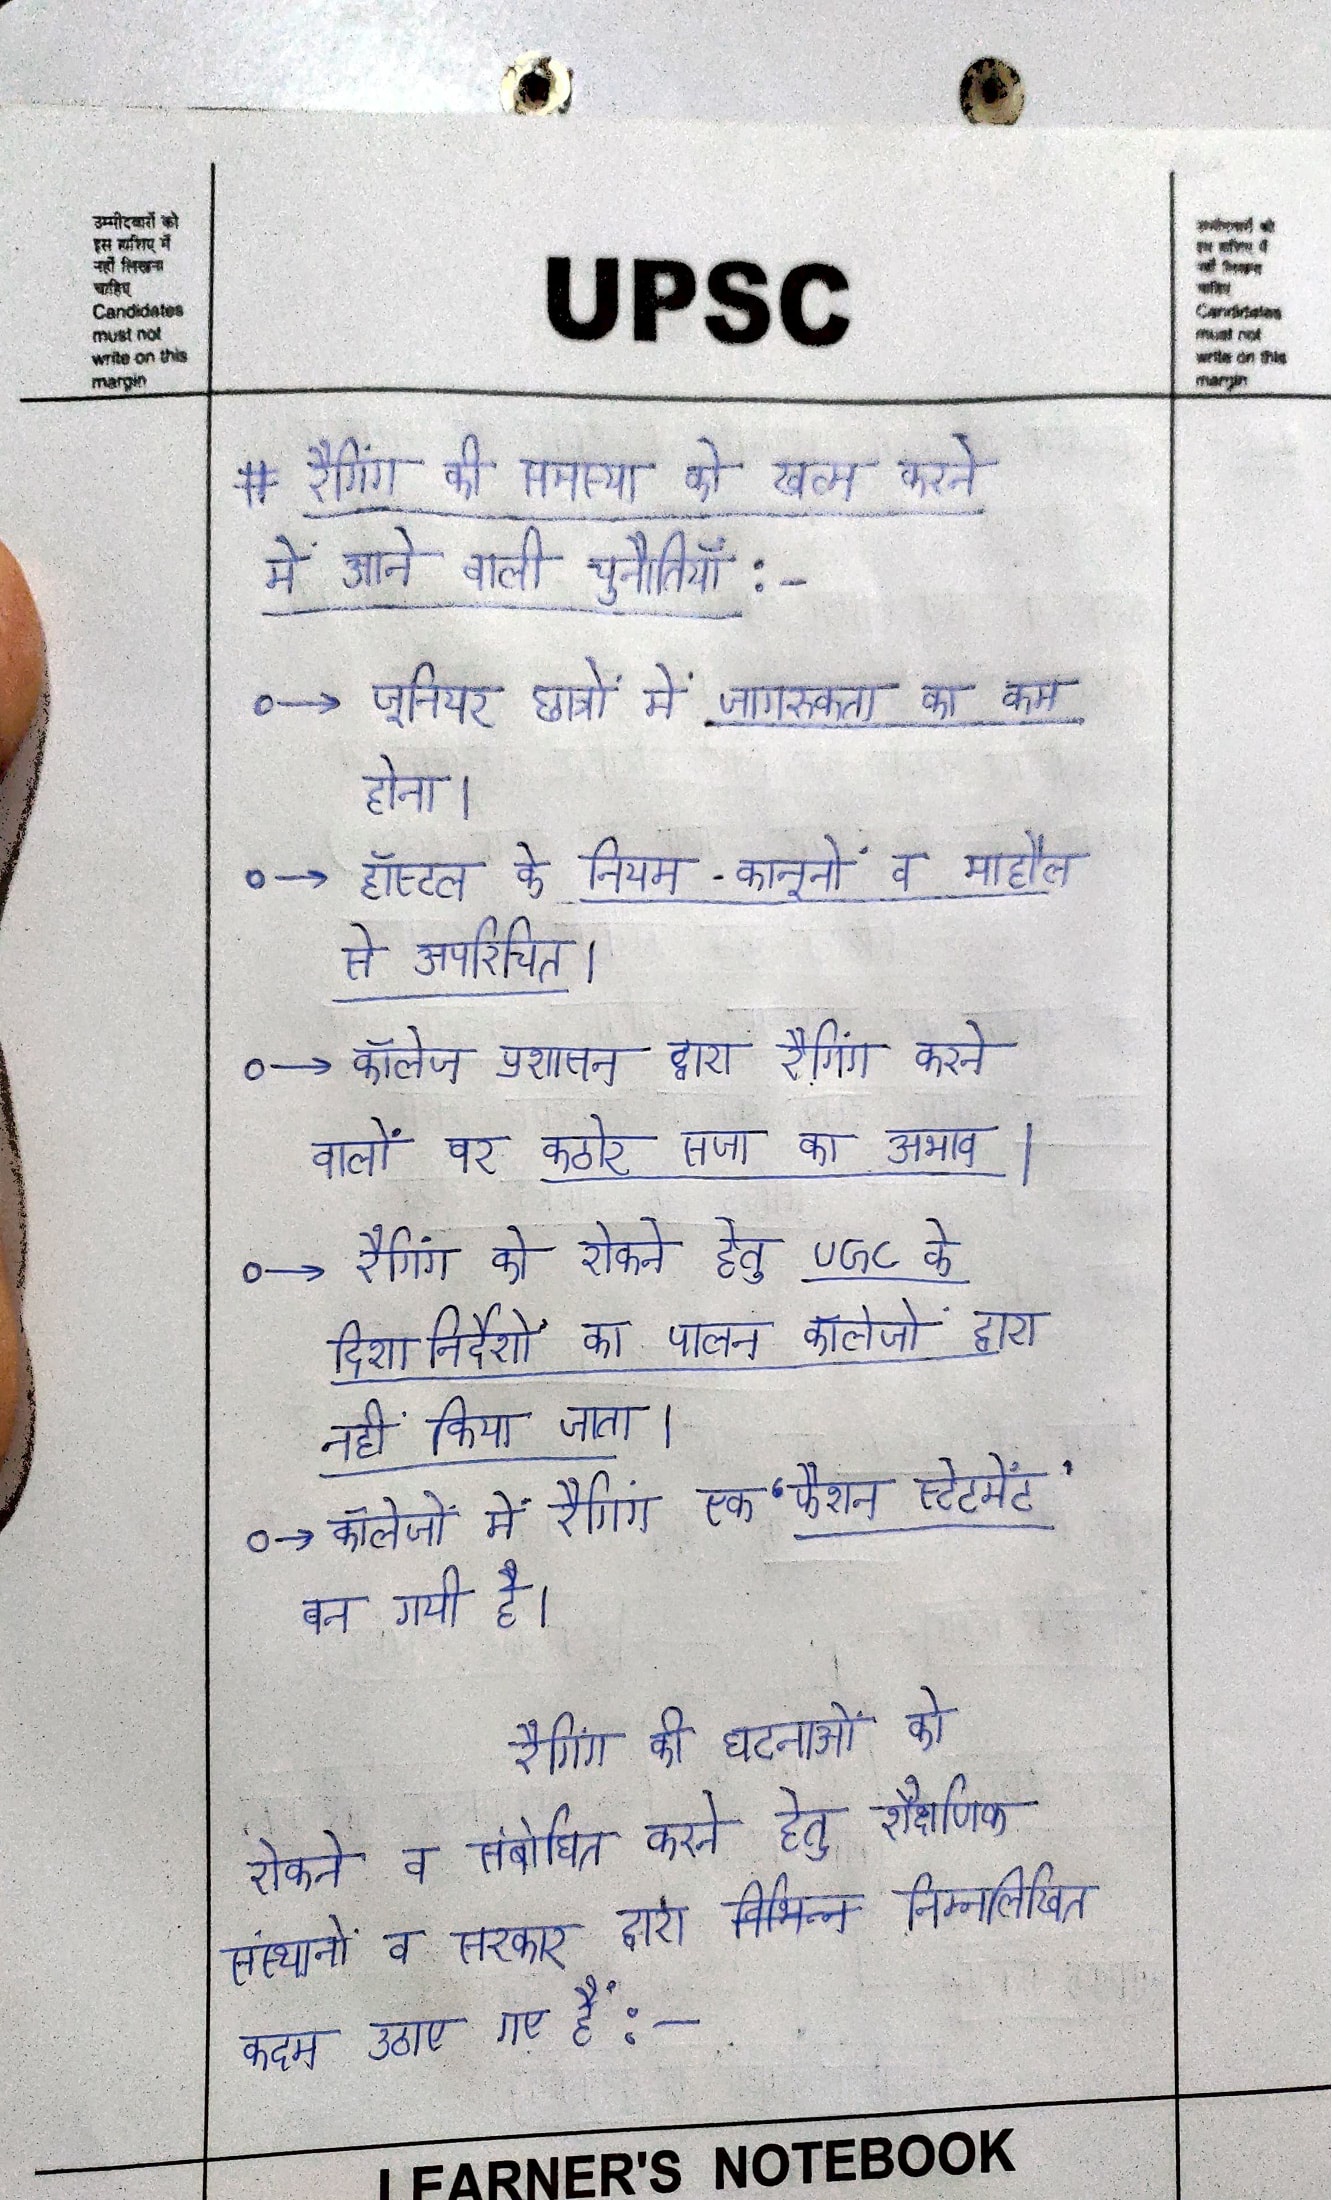 उम्मीदवारों को
इस हाशिए में
नहीं लिखना
चाहिए
Candidates
must not
write on this
margin
UPSC
उम्मीदवारों को
इस हाशिए में
नहीं लिखना
चाहिए
Candidates
must not
write on this
margin
# रैगिंग की समस्या को खत्म करने
में आने वाली चुनौतियाँ :-
→ जूनियर छात्रों में जागरुकता का कम
होना।
→ हॉस्टल के नियम - कानूनों व माहौल
से अपरिचित।
→ कॉलेज प्रशासन द्वारा रैगिंग करने
वालों पर कठोर सजा का अभाव।
→ रैगिंग को रोकने हेतु UGC के
दिशा निर्देशों का पालन कॉलेजों द्वारा
नहीं किया जाता।
→ कॉलेजों में रैगिंग एक ‘फैशन स्टेटमेंट’
बन गयी है।
रैगिंग की घटनाओं को
रोकने व संबोधित करने हेतु शैक्षणिक
संस्थानों व सरकार द्वारा विभिन्न निम्नलिखित
कदम उठाए गए हैं :-
LEARNER'S NOTEBOOK